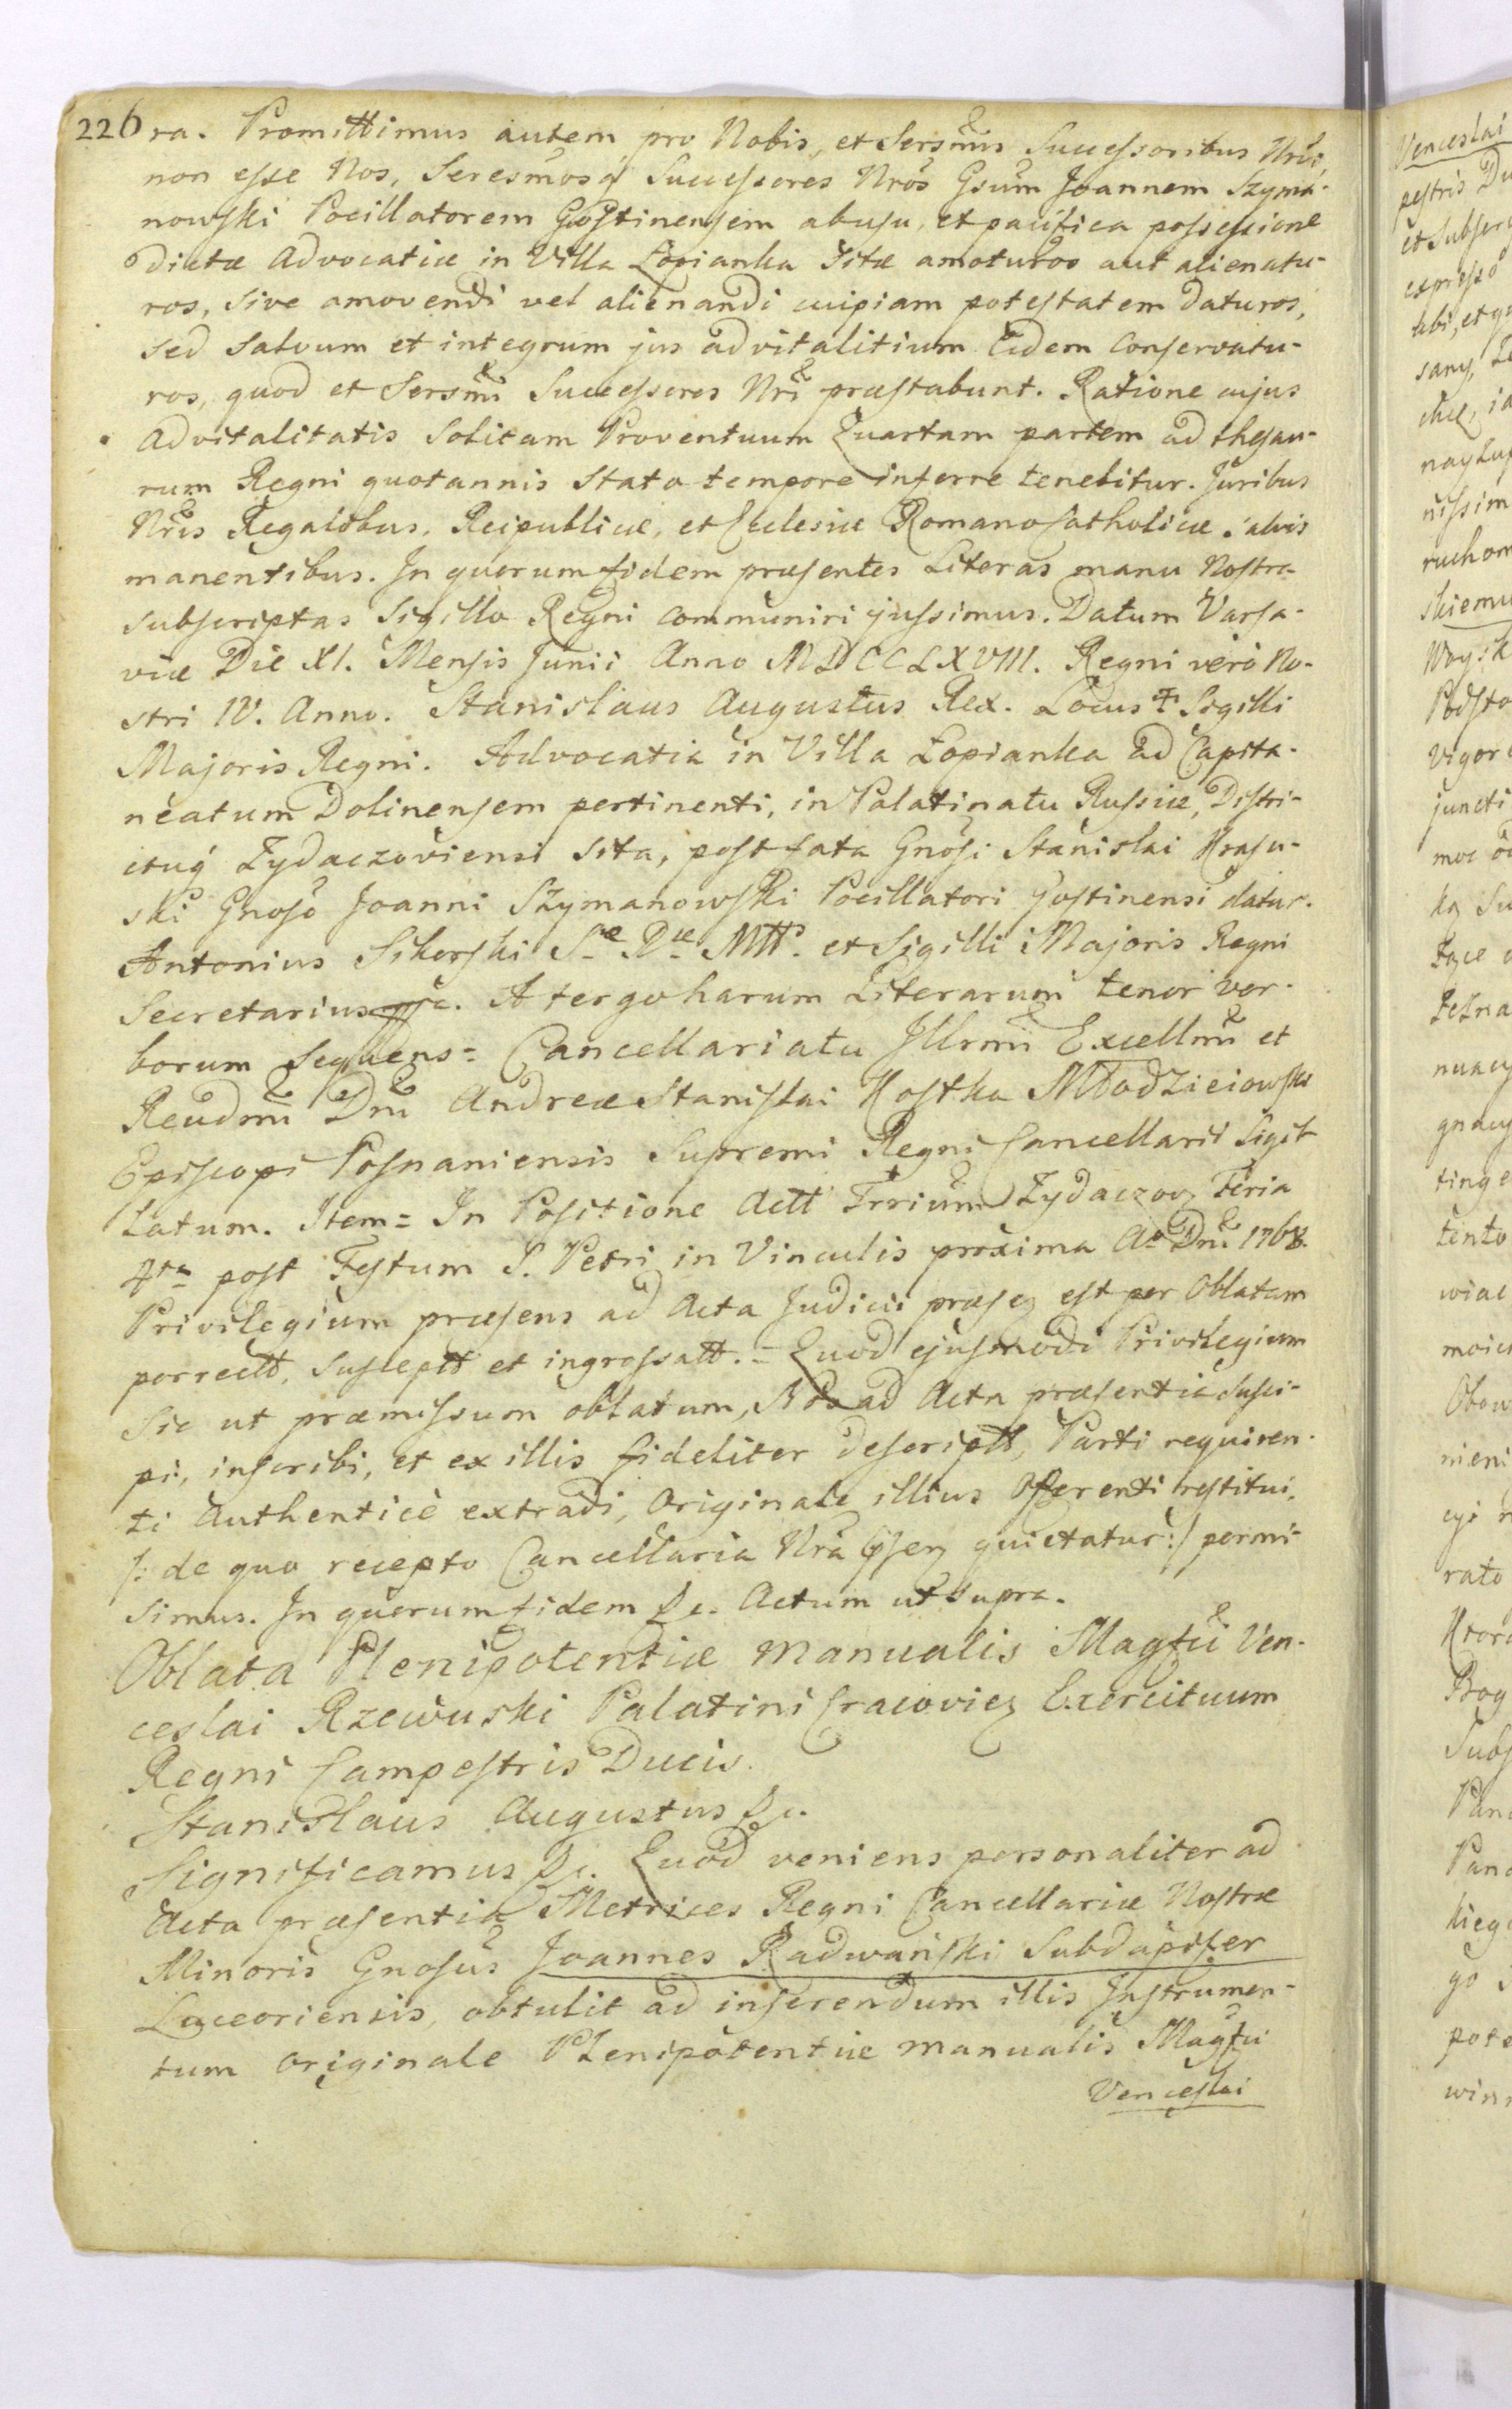 226 ra. Promittimus autem pro Nobis, et Sersmis Successoribus Nris,
non esse Nos, Seresmosq Successores Nros Gsum Joannem Szyma-
nowski Pocillatorem Gostinensem ab usu, et pacifica possessione
dictæ Advocatiæ in Villa Łopianka sitæ amoturos aut alienatu-
ros, sive amovendi vel alienandi cuipiam potestatem daturos,
sed salvum et integrum jus advitalitium Eidem conservatu-
ros, quod et Sersmi Successores Nri præstabunt. Ratione cujus
advitalitatis solitam Proventuum Quartam partem ad thesau-
rum Regni quotannis stato tempore inferre tenebitur. Juribus
Nris Regalibus, Reipublicæ, et Ecclesiæ Romano Catholicæ salvis
manentibus. In quorum fidem præsentes Literas manu Nostra
subscriptas Sigillo Regni communiri jussimus. Datum Varsa-
viæ Die XI. Mensis Junii Anno MDCCLXVIII. Regni vero No-
stri IV. Anno. Stanislaus Augustus Rex. Locus ✝ Sigilli
Majoris Regni. Advocatia in Villa Łopianka ad Capita-
neatum Dolinensem pertinenti, in Palatinatu Russiæ, Distri-
ctuq Zydaczoviensi sita, post fata Gnosi Stanislai Krasu-
ski Gnoso Joanni Szymanowski Pocillatori Gostinensi datur.
Antonius Sikorski S. R. Mtts. et Sigilli Majoris Regni
Secretarius. A tergo harum Literarum tenor ver-
borum sequens = Cancellariatu Illrmi Excellmi et
Reudmi Dni Andreæ Stanislai Kostka Młodzieiowski
Episcopi Posnaniensis Supremi Regni Cancellarii Sigil-
latum. Item = In Positione Actt Trrium Zydaczov Feria
4ta post Festum S. Petri in Vinculis proxima Ao Dni 1768.
Privilegium præsens ad Acta Judicii præsen est per Oblatam
porrectt, susceptt et ingrossatt. = Quod ejusmodi Privilegium
sic ut præmissum oblatum, Nos ad Acta præsentia susci-
pi, inscribi, et ex illis fideliter descriptt, Parti requiren-
ti authentice extradi, Originale illius Offerenti restitui,
/: de quo recepto Cancellaria Nra psen quietatur :/ permi-
simus. In quorum fidem &c. Actum ut supra.
Oblata Plenipotentiæ manualis Magfci Ven-
ceslai Rzewuski Palatini Cracovien Exercituum
Regni Campestris Ducis.
Stanislaus Augustus &c.
Significamus &c. Quod veniens personaliter ad
Acta præsentia Metrices Regni Cancellariæ Nostræ
Minoris Gnosus Joannes Radwański Subdapifer
Luceoriensis, obtulit ad inserendum illis Instrumen-
tum originale Plenipotentiæ manualis Magfci
Venceslai